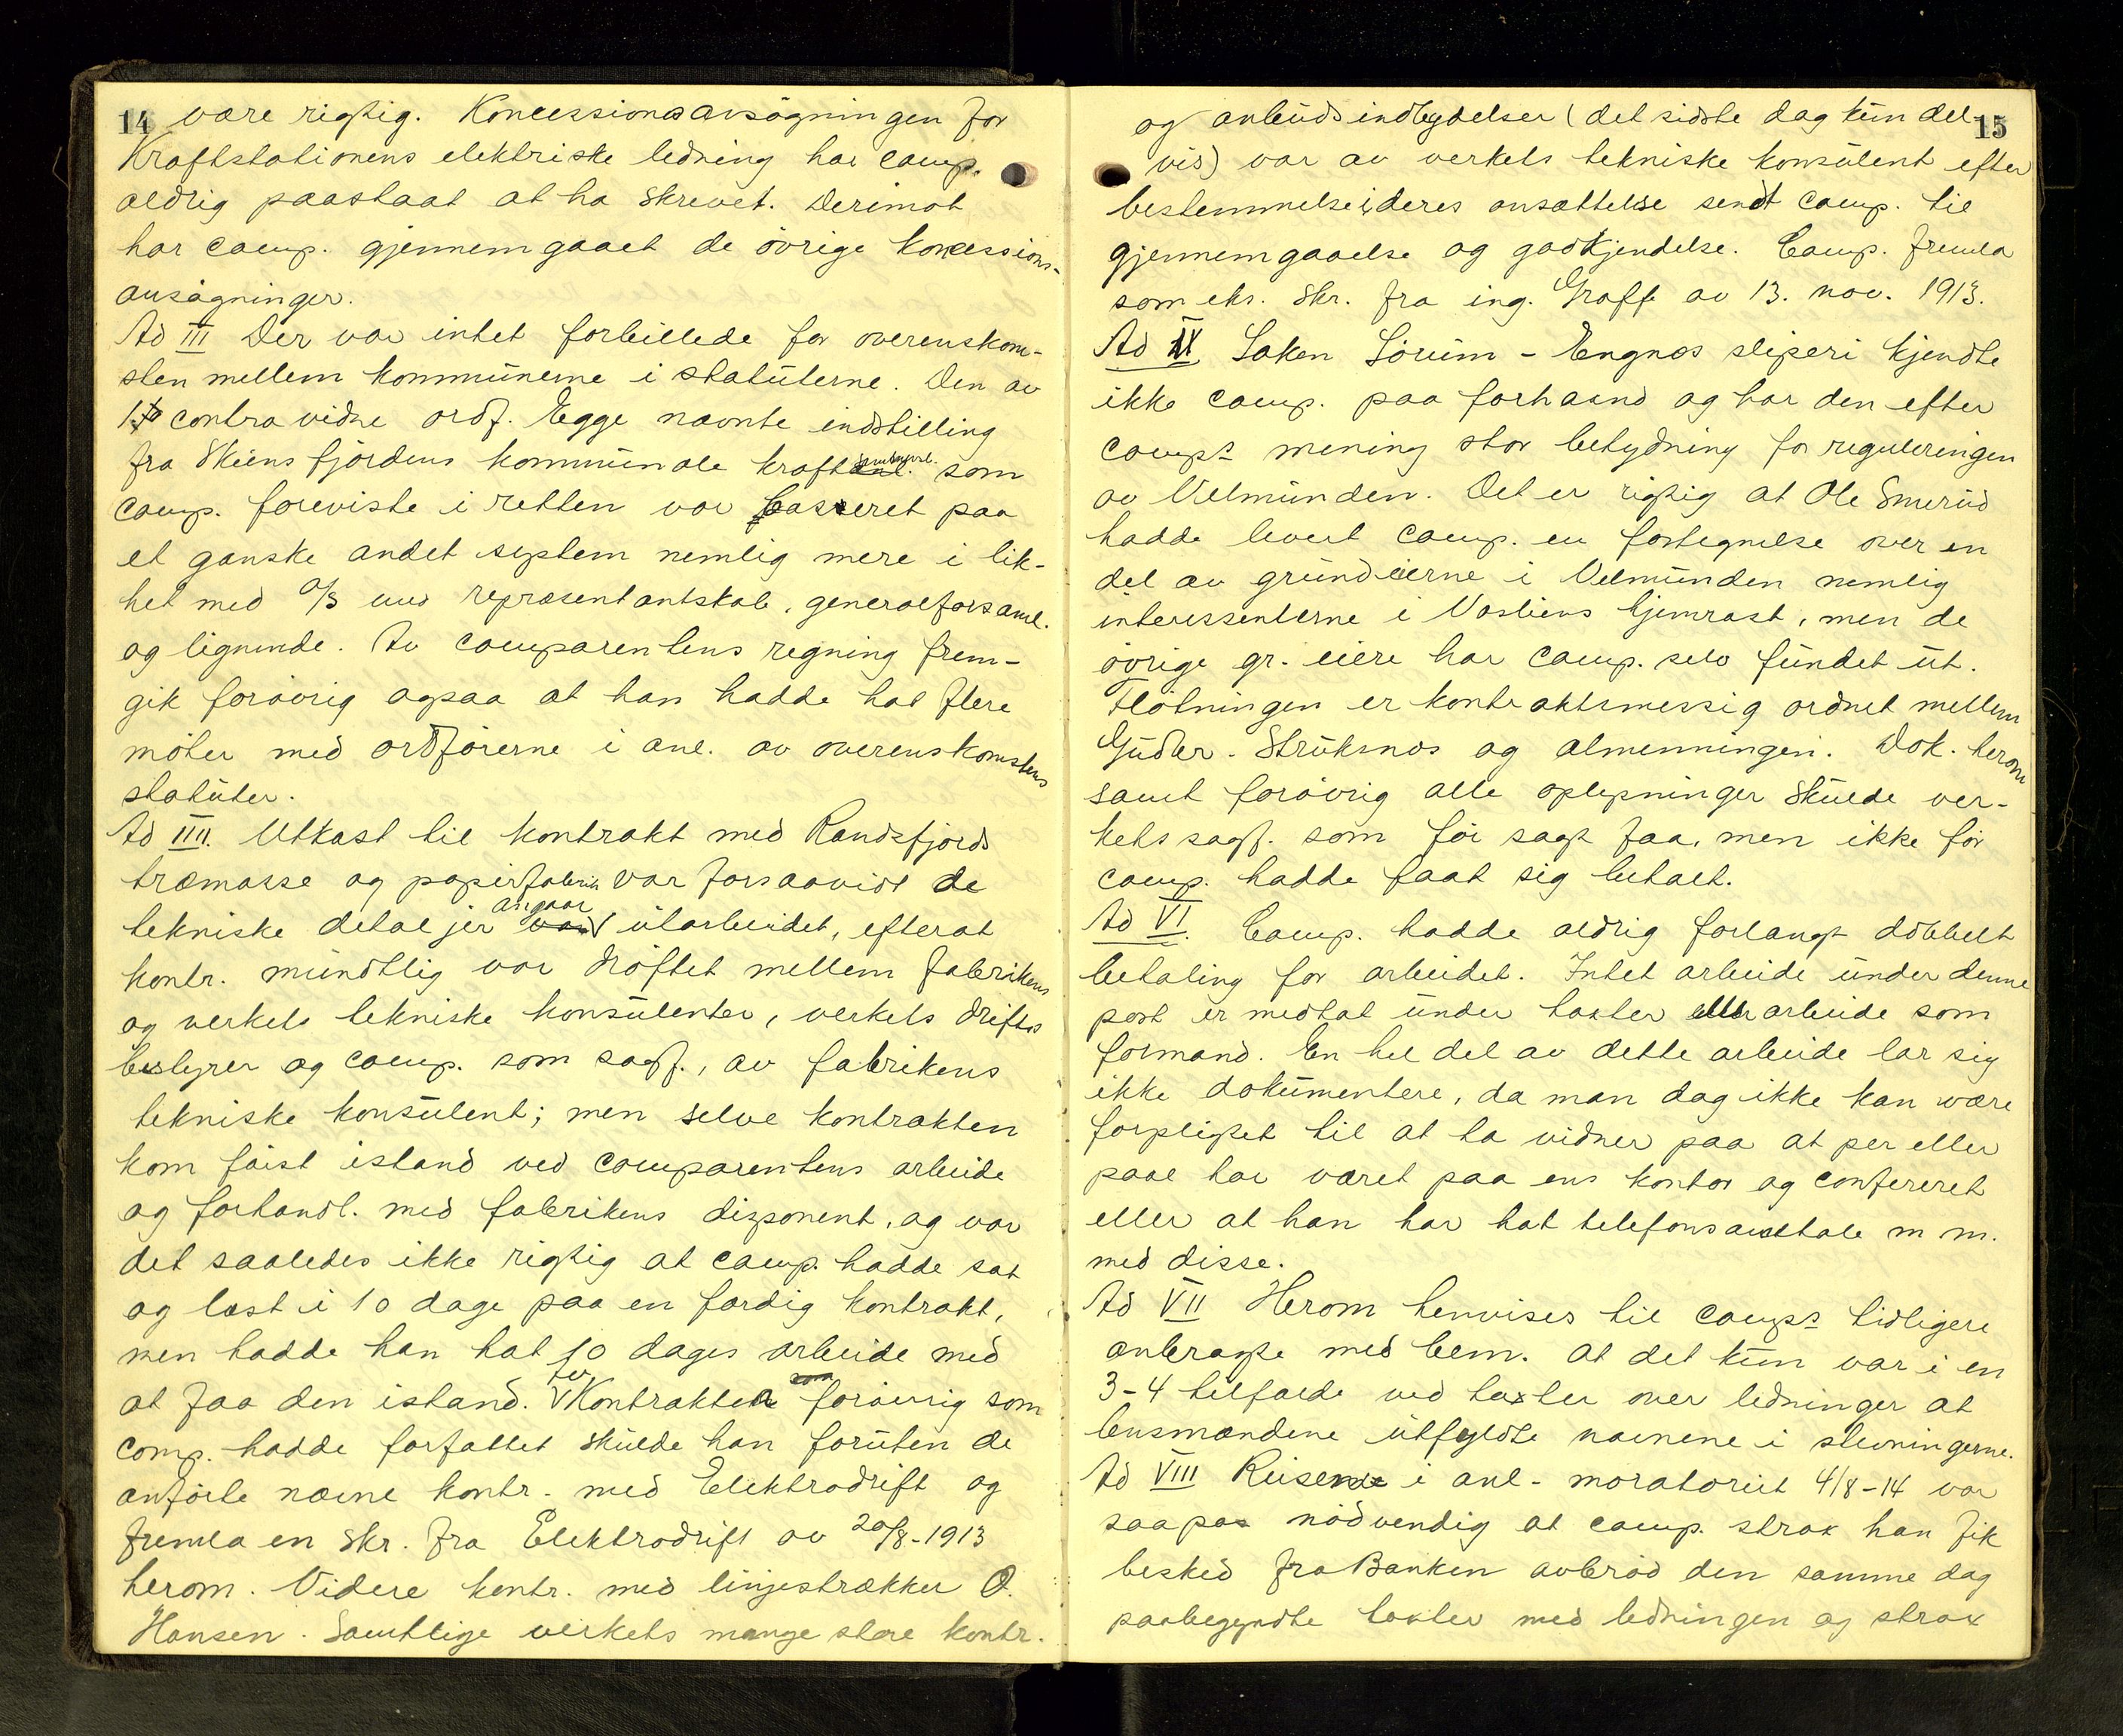 14 være rigtig. Koncessionsansøgningen for
Kraftstationens elektriske ledning har comp.
aldrig paastaat at ha skrevet. Derimot
har comp. gjennemgaaet de øvrige koncessions-
ansøgninger.
Ad III Der var intet forbillede for overenskom-
sten mellem kommunerne i statuterne. Den av
1ste contravidne ordf. Egge nævnte indstilling
fra Skiensfjordens kommunale kraft som
comp. foreviste i retten var basseret paa
et ganske andet system nemlig mere i lik-
het med A/S med repræsentantskab, generalforsaml.
og lignende. Av comparentens regning frem-
gik forøvrig ogsaa at han hadde hat flere
møter med ordførerne i anl. av overenskomstens
statuter.
Ad IIII. Utkast til kontrakt med Randsfjords
træmasse og papirfabrik var forsaavidt de
tekniske detaljer angaar utarbeidet, efterat
kontr. mundtlig var drøftet mellem fabrikens
og verkets tekniske konsulenter, verkets drifts
bestyrer og comp. som sagf., av fabrikens
tekniske konsulent; men selve kontrakten
kom først istand ved comparentens arbeide
og forhandl. med fabrikens disponent, og var
det saaledes ikke rigtig at comp. hadde sat
og læst i 10 dage paa en færdig kontrakt,
men hadde han hat 10 dages arbeide med
at faa den istand. Kontrakter forøvrig som
comp. hadde forfattet skulde han foruten de
anførte nævne kontr. med Elektrodrift og
fremla en skr. fra Elektrodrift av 20/8-1913
herom. Videre kontr. med linjestrækker O.
Hansen. Samtlige verkets mange store kontr.
og anbudsindbydelser (det sidste dog kun del- 15
vis) var av verkets tekniske konsulent efter
bestemmelse i deres ansættelse sendt comp. til
gjennemgaaelse og godkjendelse. Comp. fremla
som eks. skr. fra ing. Graff av 13. nov. 1913.
Ad Saken Sørum - Engnæs sliperi kjendte
ikke comp. paa forhaand og har den efter
comps mening stor betydning for reguleringen
av Velmunden. Det er rigtig at Ole Smerud
hadde levert comp. en fortegnelse over en
del av grundeierne i Velmunden nemlig
interessenterne i Vasliens hjemrast, men de
øvrige gr. eiere har comp. selv fundet ut.
Fløtningen er kontraktsmessig ordnet mellem
Guder - Struksnæs og almenningen. Dok. herom
samt forøvrig alle oplysninger skulde ver-
kets sagf. som før sagt faa, men ikke før
comp. hadde faat sig betalt.
Ad VI. Comp. hadde aldrig forlangt dobbelt
betaling for arbeidet. Intet arbeide under denne
post er medtat under takster eller arbeide som
formand. En hel del av dette arbeide lar sig
ikke dokumentere, da man dog ikke kan være
forpligtet til at ta vidner paa at per eller
paal har været paa ens kontor og confereret
eller at han har hat telefonsamtale m m.
med disse.
Ad VII Herom henvises til comps tidligere
anbragte med bem. at det kun var i en
3-4 tilfælde ved takster over ledninger at
lensmændene utfyldte navnene i stevningerne.
Ad VIII Reisene i anl. moratoriet 4/8-14 var
saapas nødvendig at comp. strax han fik
besked fra Banken avbrød den samme dag
paabegyndte takster med ledningen og strax